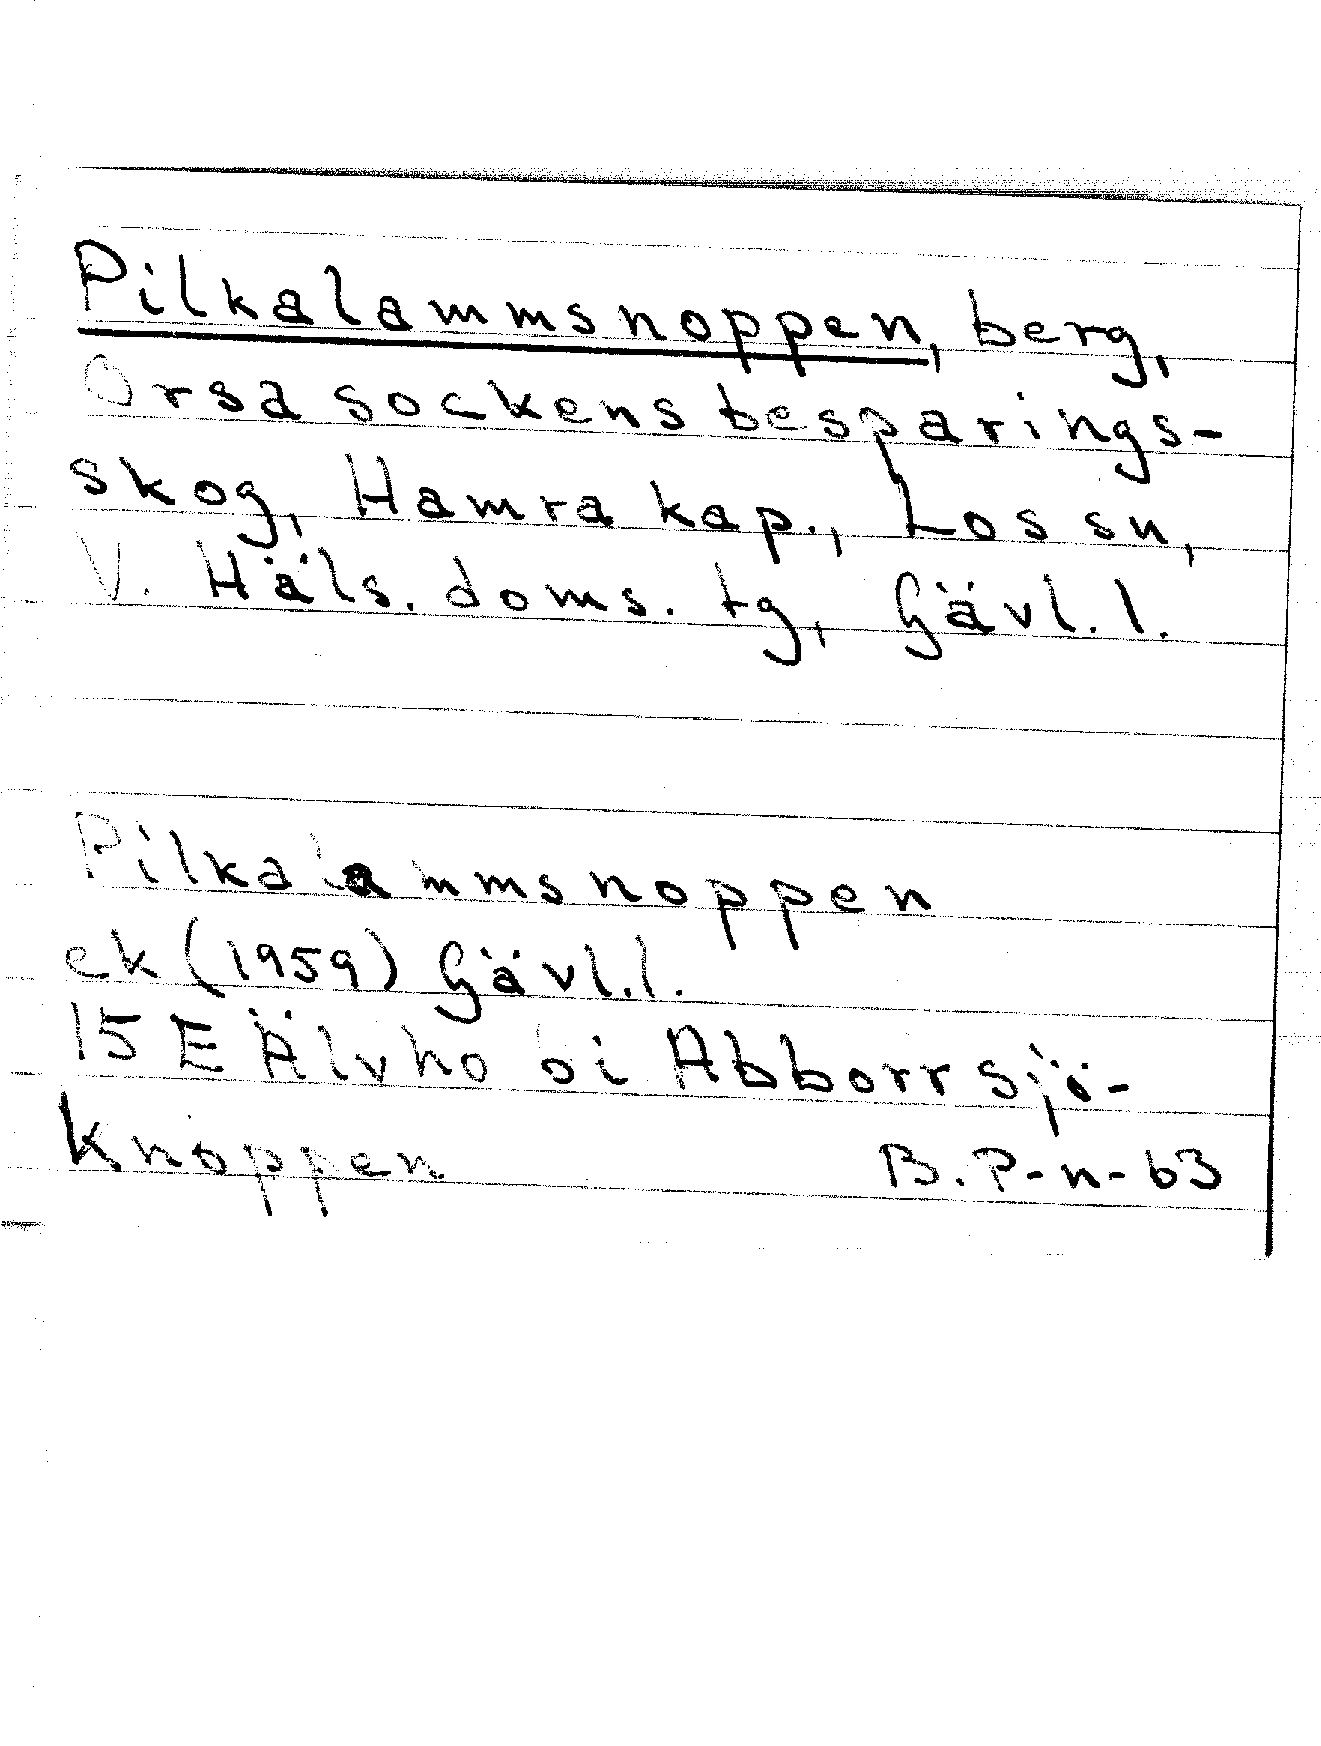 Pilkalammsnoppen, berg,
Orsa sockens besparings-
skog, Hamra kap., Los sn,
V. Häls. doms. tg, Gävl. l.
Pilkalammsnoppen
ek (1959) Gävl. l.
15 E Älvho öi Abborrsjö-
knoppen B. P-n-63